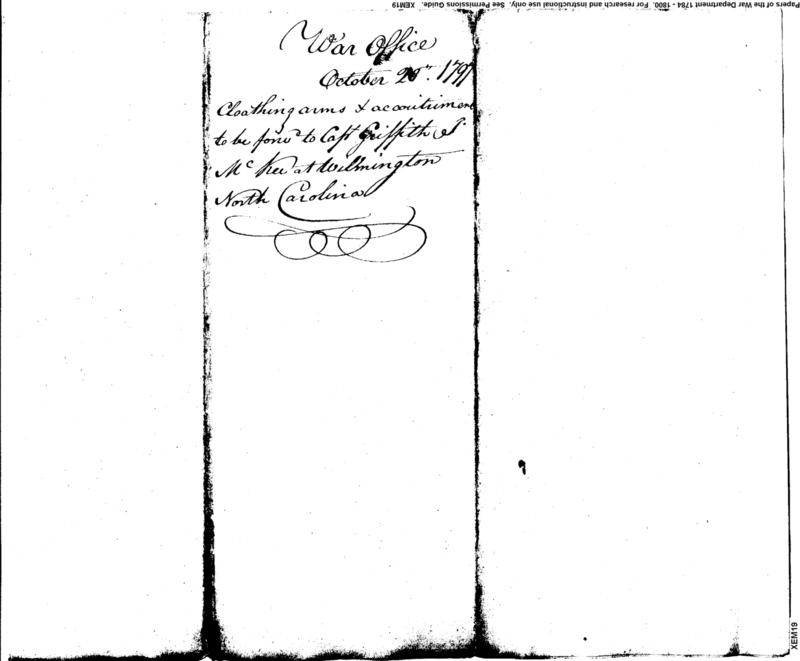 Papers of the War Department 1784 - 1800. For research and instructional use only. See Permissions Guide. XEM19
War Office
October 20th. 1797
Cloathing arms & accoutriment
to be forwd to Capt Griffith J.
Mc Kee at Wilmington
North Carolina
XEM19